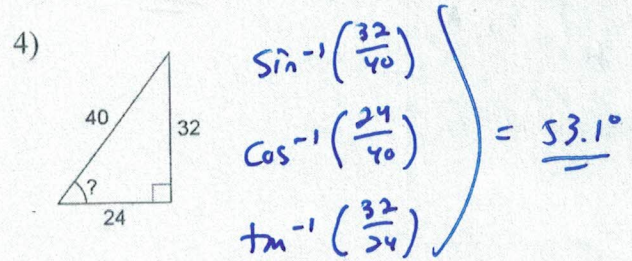 4)
40
32
?
24
sin⁻¹(32/40)
cos⁻¹(24/40) = 53.1°
tan⁻¹(32/24)